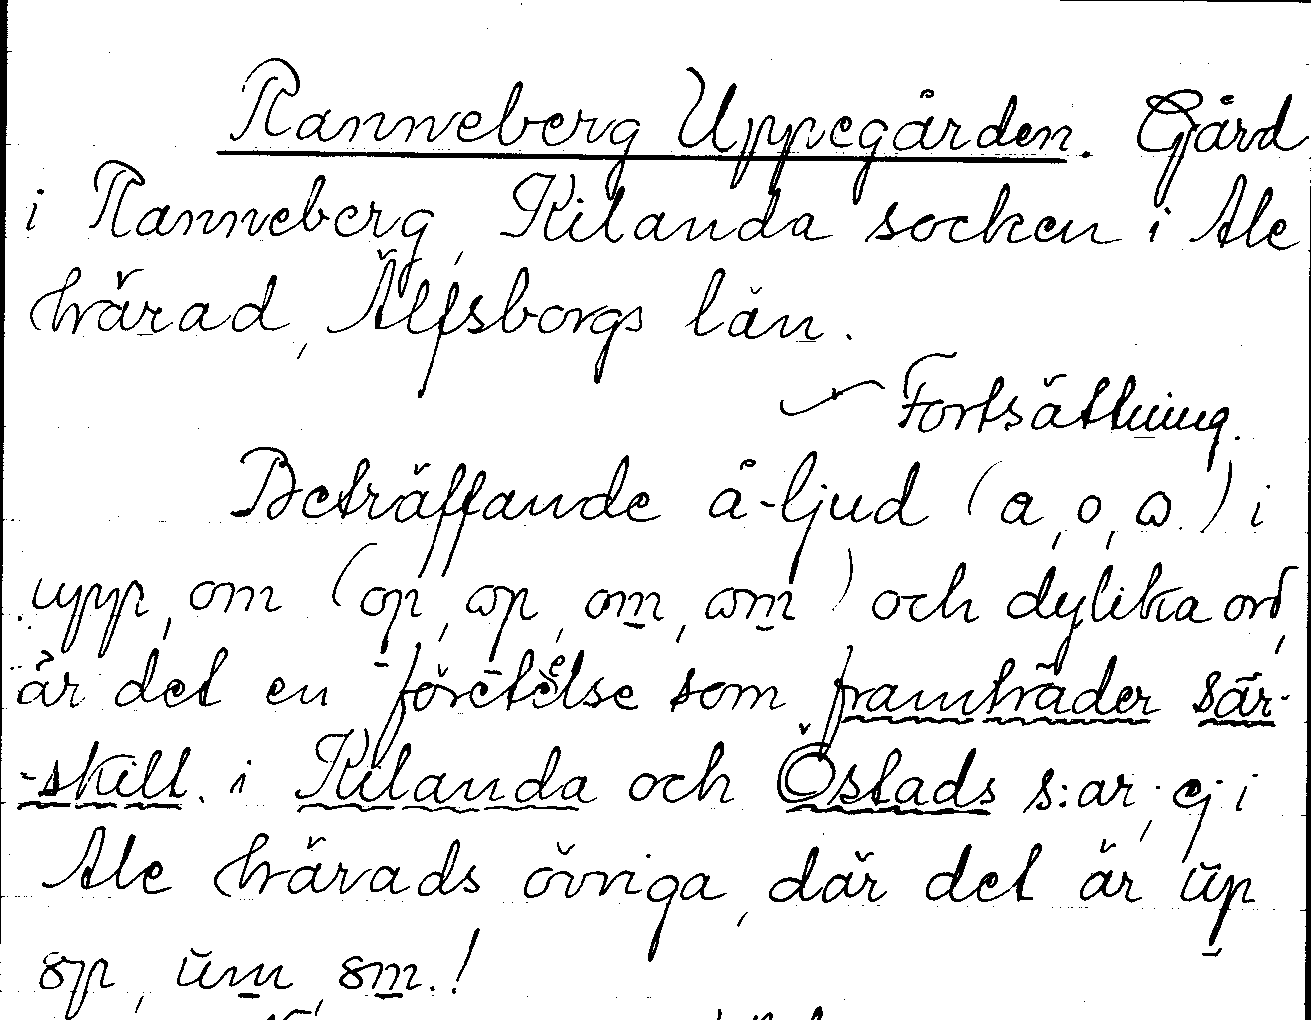 Ranneberg Uppegården. Gård
i Ranneberg, Kilanda socken i Ale
härad, Älfsborgs län.
Fortsättning.
Beträffande å-ljud (a, o, ω) i
upp, om (op, ωp, om, ωm) och dylika ord,
är det en företeelse som framträder sär-
-skilt i Kilanda och Östads s:ar, ej i
Ale härads övriga, där det är üp
8p, üm, 8m.!